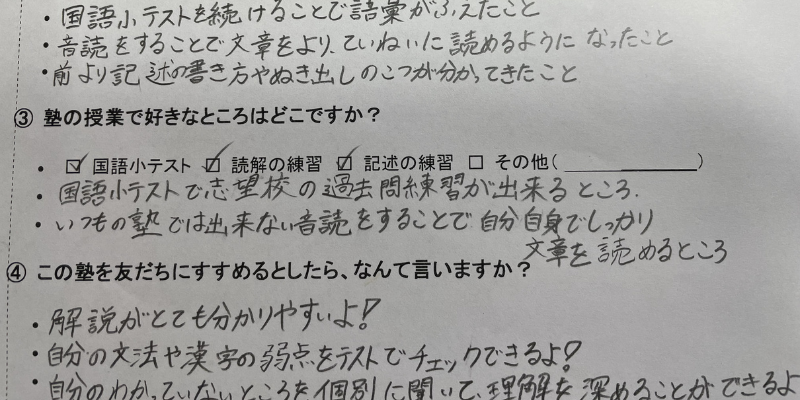 ・国語小テストを続けることで語彙がふえたこと
・音読をすることで文章をより、ていねいに読めるようになったこと
・前より記述の書き方やぬき出しのこつが分かってきたこと
③ 塾の授業で好きなところはどこですか？
・☑ 国語小テスト ☑ 読解の練習 ☑ 記述の練習 □ その他（＿＿＿＿＿＿＿）
・国語小テストで志望校の過去問練習が出来るところ.
・いつもの塾では出来ない音読をすることで自分自身でしっかり
文章を読めるところ
④ この塾を友だちにすすめるとしたら、なんて言いますか？
・解説がとても分かりやすいよ！
・自分の文法や漢字の弱点をテストでチェックできるよ！
・自分のわかっていないところを個別に聞いて、理解を深めることができるよ